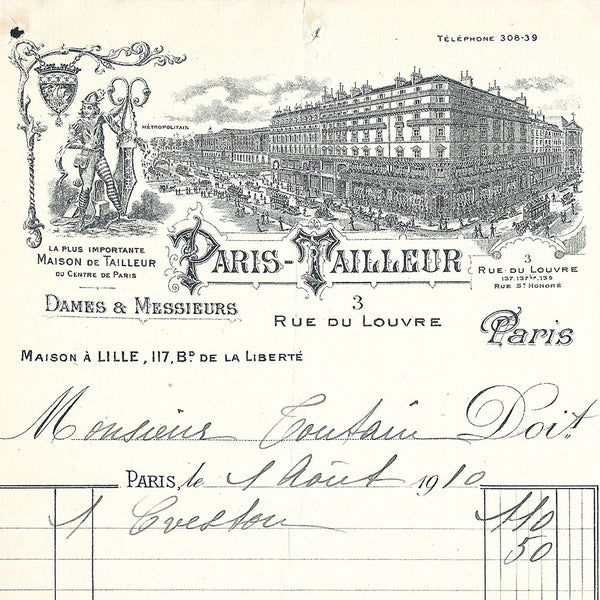 TÉLÉPHONE 308-39
MÉTROPOLITAIN
LA PLUS IMPORTANTE
MAISON DE TAILLEUR
DU CENTRE DE PARIS
DAMES & MESSIEURS
PARIS-TAILLEUR
3
RUE DU LOUVRE
3
RUE DU LOUVRE
137, 137bis, 139
RUE St HONORÉ
Paris
MAISON À LILLE, 117, Bd DE LA LIBERTÉ
Monsieur Coutain Doit
PARIS, le 1 Août 1910
1 Veston 110
50